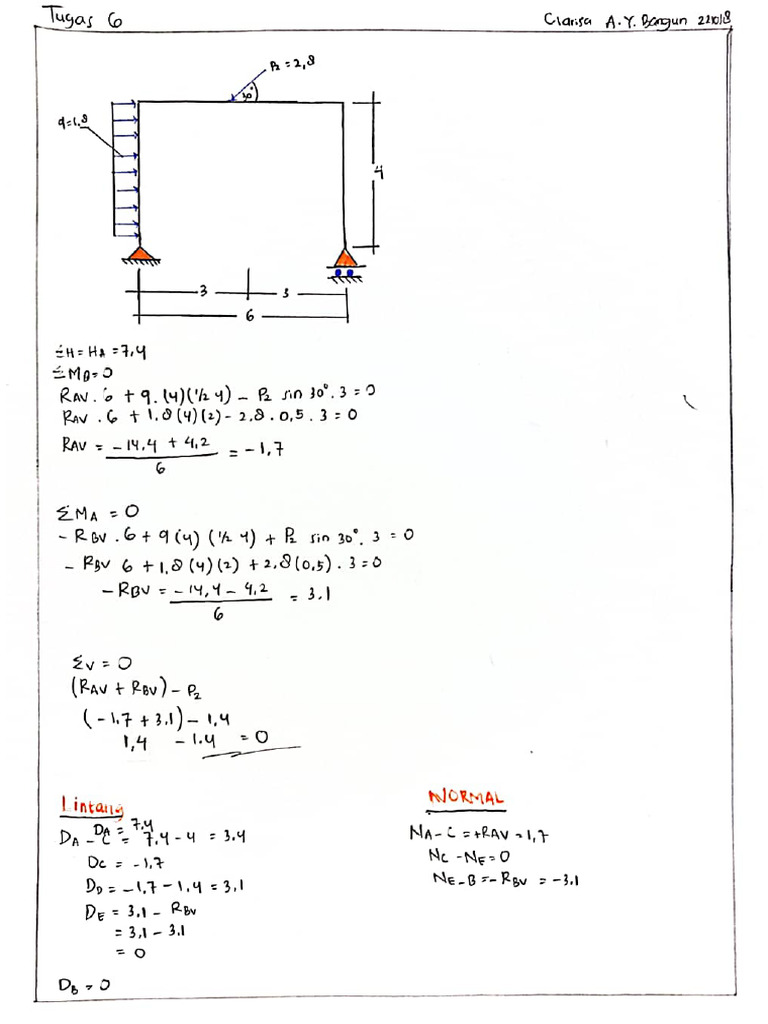 Tugas 6
Clarisa A.Y. Bangun 221018
P2 = 2,8
30°
q=1.8
4
3
3
6
ΣH = HA = 7,4
ΣMB=0
RAV . 6 + q . (4) (1/2 4) - P2 sin 30° . 3 = 0
RAV . 6 + 1,8 (4) (2) - 2,8 . 0,5 . 3 = 0
RAV = -14,4 + 4,2 / 6 = -1,7
ΣMA = 0
- RBV . 6 + q (4) (1/2 4) + P2 sin 30° . 3 = 0
- RBV 6 + 1,8 (4) (2) + 2,8 (0,5) . 3 = 0
- RBV = -14,4 - 4,2 / 6 = 3.1
ΣV = 0
(RAV + RBV) - P2
(-1.7 + 3.1) - 1,4
1,4 - 1.4 = 0
Lintang
DA = 7.4
DA - C = 7,4 - 4 = 3.4
DC = -1,7
DD = -1,7 - 1,4 = 3,1
DE = 3,1 - RBV
= 3,1 - 3.1
= 0
DB = 0
NORMAL
NA-C = +RAV = 1,7
NC - NE = 0
NE-B = - RBV = -3.1